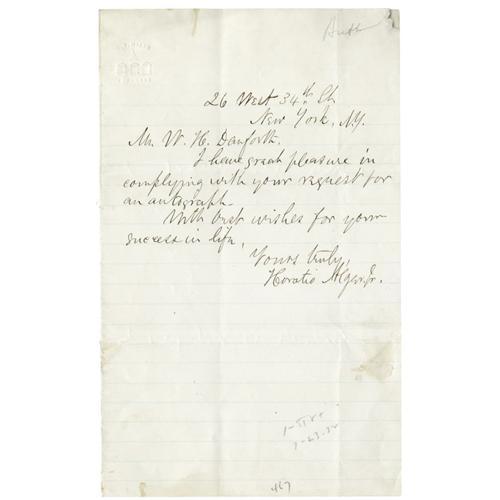 Auth
26 West 34th St.
New York, N.Y.
Mr. W. H. Danforth.
I have great pleasure in
complying with your request for
an autograph.
With best wishes for your
success in life,
Yours truly,
Horatio Alger, Jr.
467